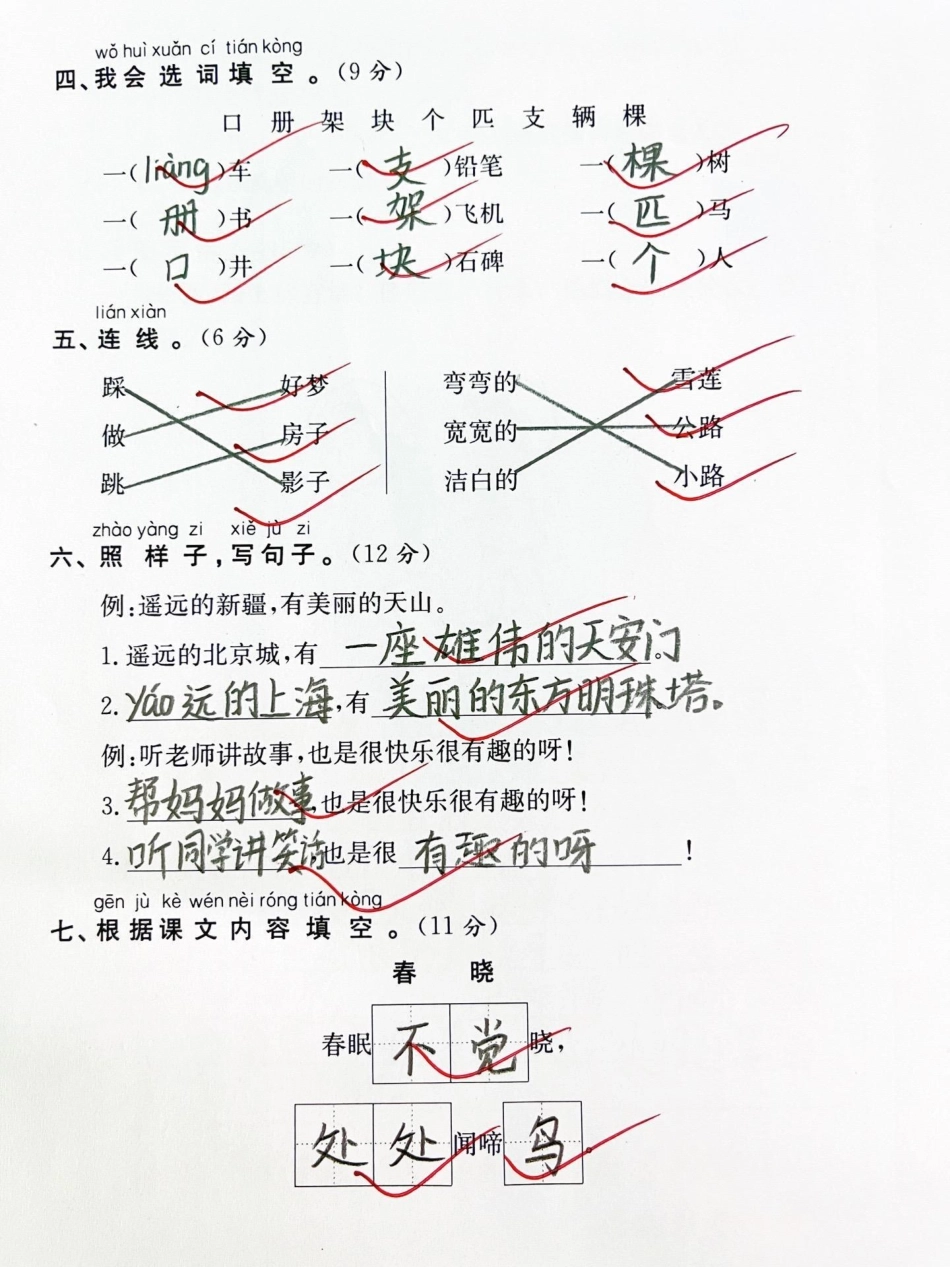 wǒ huì xuǎn cí tián kòng
四、我会选词填空。（9分）
口 册 架 块 个 匹 支 辆 棵
一(liàng)车 一(支)铅笔 一(棵)树
一(册)书 一(架)飞机 一(匹)马
一(口)井 一(块)石碑 一(个)人
lián xiàn
五、连线。（6分）
踩 好梦 弯弯的 雪莲
做 房子 宽宽的 公路
跳 影子 洁白的 小路
zhào yàng zi xiě jù zi
六、照样子,写句子。（12分）
例:遥远的新疆,有美丽的天山。
1. 遥远的北京城,有一座雄伟的天安门
2. yáo远的上海,有美丽的东方明珠塔。
例:听老师讲故事,也是很快乐很有趣的呀!
3. 帮妈妈做事,也是很快乐很有趣的呀!
4. 听同学讲笑话,也是很有趣的呀!
gēn jù kè wén nèi róng tián kòng
七、根据课文内容填空。（11分）
春 晓
春眠不觉晓,
处处闻啼鸟。